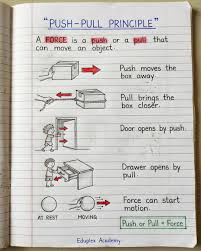 "PUSH-PULL PRINCIPLE"
A FORCE is a push or a pull that
can move an object.
Push moves the
box away.
Pull brings the
box closer.
Door opens by push.
Drawer opens by
pull.
Force can start
motion.
AT REST MOVING
Push or Pull = Force
Eduplex Academy